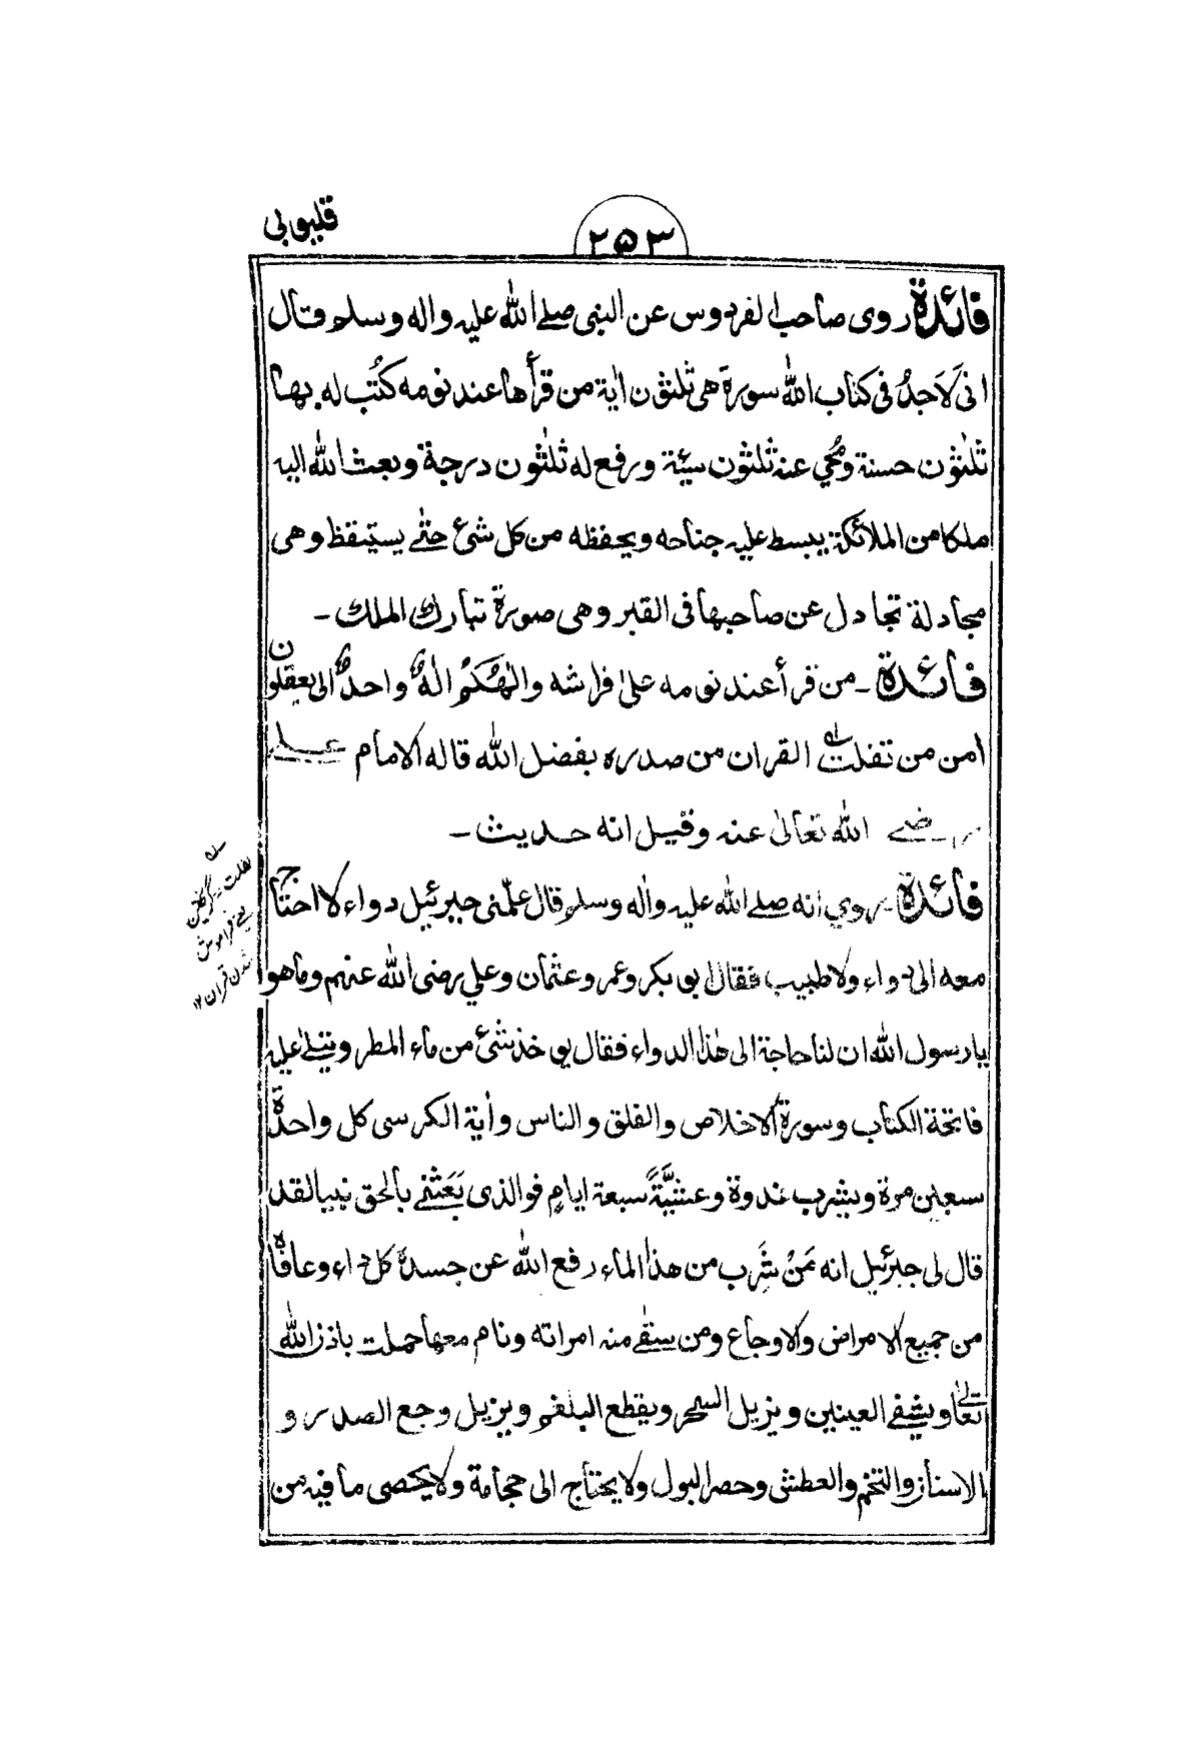 قليوبي
٢٥٣
فائدة روى صاحب الفردوس عن النبى صلے الله عليه واله وسلم قال
انى لَاَجدُ فى كتاب الله سورة هى ثلثون اٰية من قرأها عند نومه كُتب له بها
ثلٰثون حسنة ومُحي عنه ثلثون سيّئة ورفع له ثلٰثون درجة وبعث الله اليه
ملكا من الملائكة يبسط عليه جناحه ويحفظه من كل شئ حتٰے يستيقظ وهى
مجادلة تجادل عن صاحبها فى القبر وهى صورة تبارك الملك ـ
فائدة ـ من قرأ عند نومه علىٰ فراشه والٰهُكم الٰهٌ واحدٌ الى يعقلون
امن من تفلت القران من صدره بفضل الله قاله الامام علے
رضے الله تعالىٰ عنه وقيل انه حديث ـ
فائدة ـ روي انه صلے الله عليه واٰله وسلم قال علّمنى جبرئيل دواء لا احتاج
معه الى دواء ولا طبيب فقال ابو بكر وعمر وعثمان وعلي رضى الله عنهم وماهو
يا رسول الله ان لنا حاجة الى هٰذا الدواء فقال يو خذ شئ من ماء المطر ويتلےٰ عليه
فاتحة الكتاب وسورة الاخلاص والفلق والناس واٰية الكرسى كل واحدة
سبعين مرة ويشرب غدوة وعشيَّةً سبعة ايامٍ فوالذى بَعَثنے بالحق نبيا لقد
قال لى جبرئيل انه مَنْ شَرِب من هذا الماء رفع الله عن جسده كل داء وعافاه
من جميع الامراض والاوجاع ومن سقٰے منه امراته ونام معها حملت باذن الله
تعالىٰ ويشفے العينين ويزيل السحر ويقطع البلغم ويزيل وجع الصدر و
الاسنان والتخم والعطش وحصر البول ولا يحتاج الى حجامة ولا يحصى ما فيه من